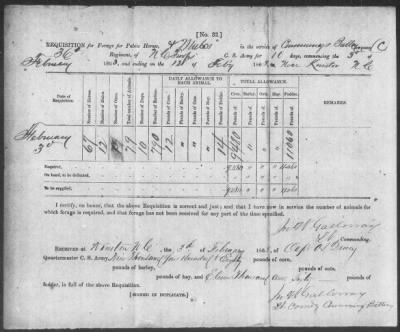 [No. 32.]
REQUISITION for Forage for Public Horses, & Mules in the service of Cummings Battery C
36th Regiment, of N C Troops C. S. Army for 10 days, commencing the 3d of
February 1863, and ending on the 12th of Feby 1863, at Near Kinston N. C.
Date of Requisition.
DAILY ALLOWANCE TO EACH ANIMAL.
TOTAL ALLOWANCE.
REMARKS
Number of Horses.
Number of Mules.
Number of Oxen.
Total number of Animals.
Number of Days.
Number of Rations.
Pounds of Corn.
Pounds of Barley.
Pounds of Oats.
Pounds of Hay.
Pounds of Fodder.
Corn.
Barley.
Oats.
Hay.
Fodder.
February
3d 67 12 " 79 10 790 12 14 9480 " " " 11060
Required, 9480 " " " 11060
On hand, to be deducted,
To be supplied, 9480 " " " 11060
I certify, on honor, that the above Requisition is correct and just; and that I have now in service the number of animals for which forage is required, and that forage has not been received for any part of the time specified.
Commanding.
RECEIVED at Kinston N C the 3d of February 1863, of Capt
Quartermaster C. S. Army, Nine Thousand four hundred & Eighty pounds of corn,
pounds of barley,
pounds of hay, and Eleven thousand and Sixty pounds of
fodder, in full of the above Requisition.
[SIGNED IN DUPLICATE.]
Galloway
Cumming Battery